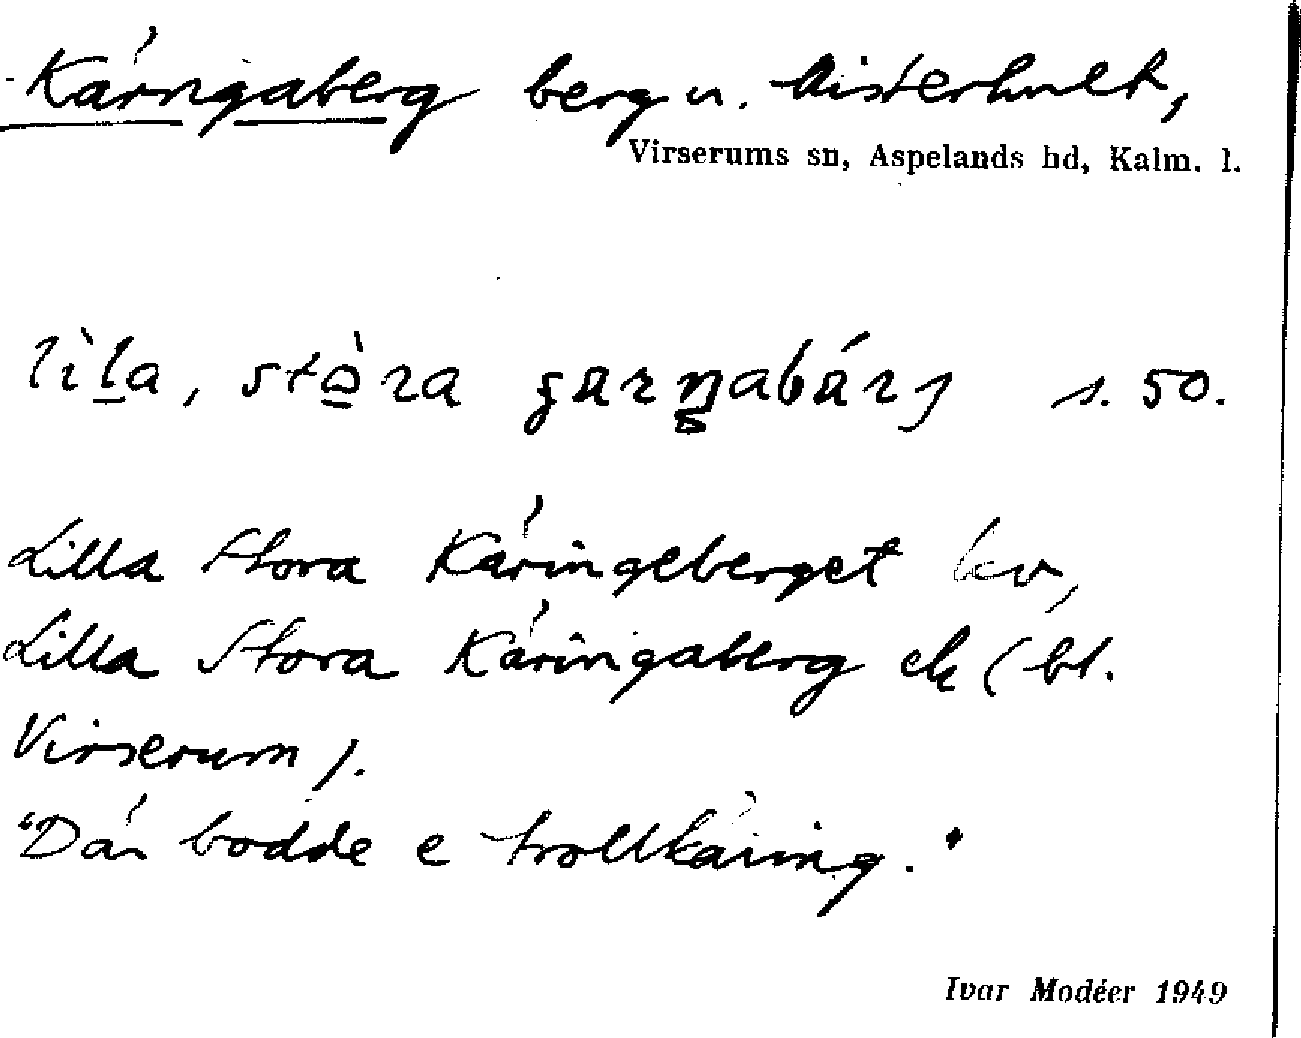 Käringaberg berg u. Misterhult,
Virserums sn, Aspelands hd, Kalm. l.
lìḻa, stə̱̀ra s. 50.
Lilla Stora Käringeberget kv,
Lilla Stora Käringaberg ek (bl.
Virserum).
"Där bodde e trollkäring."
Ivar Modéer 1949